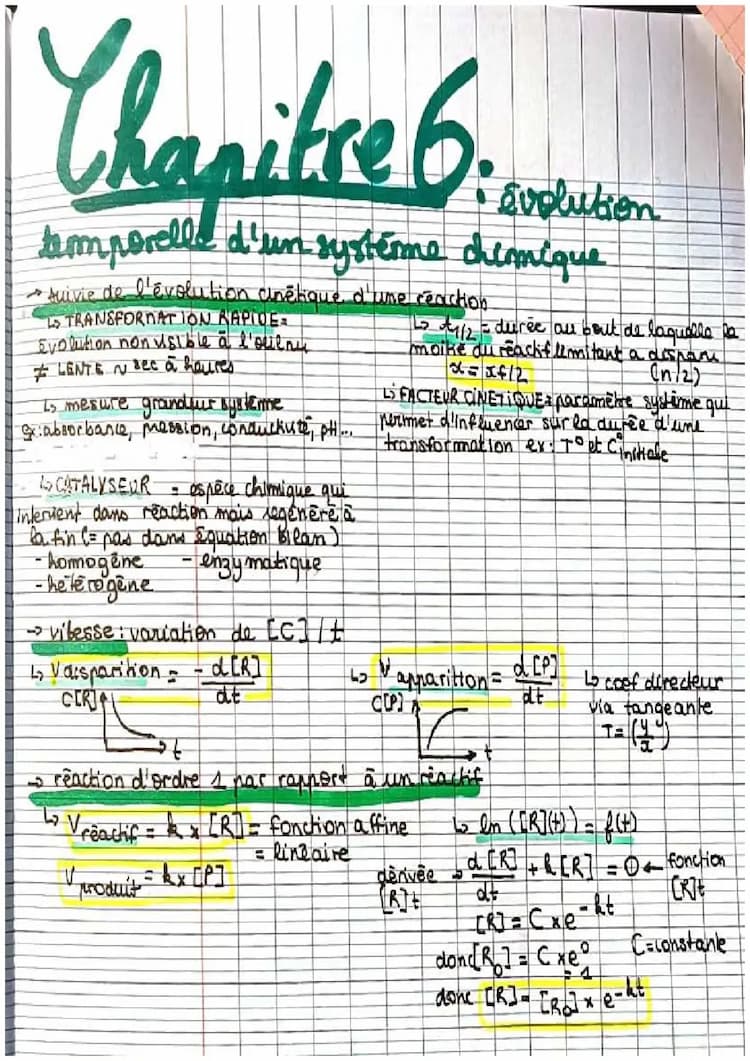 Chapitre 6: évolution
temporelle d'un système chimique
→ suivie de l'évolution cinétique d'une réaction
↳ TRANSFORMATION RAPIDE=
Evolution non visible à l'oeil nu
≠ LENTE ~ sec à heures
↳ mesure grandeur système
ex: absorbance, pression, conductivité, pH...
↳ t1/2 = durée au bout de laquelle la
moitié du réactif limitant a disparu
x = xf/2 (n/2)
↳ FACTEUR CINETIQUE= paramètre système qui
permet d'influencer sur la durée d'une
transformation ex: T° et C°initiale
↳ CATALYSEUR = espèce chimique qui
intervient dans réaction mais régénéré à
la fin (= pas dans Équation Bilan)
- homogène - enzymatique
- hétérogène
→ vitesse: variation de [C] / t
↳ Vdisparition = - d[R]/dt
C[R]
t
↳ Vapparition = d[P]/dt
C[P]
t
↳ coef directeur
via tangeante
T= (y/x)
→ réaction d'ordre 1 par rapport à un réactif
↳ Vréactif = k x [R] = fonction affine
= linéaire
Vproduit = k x [P]
↳ ln ([R](t)) = f(t)
dérivée [R]t → d[R]/dt + k[R] = 0 ← fonction [R]t
[R] = C x e^-kt
donc [R0] = C x e^0 C=constante
= 1
donc [R] = [R0] x e^-kt